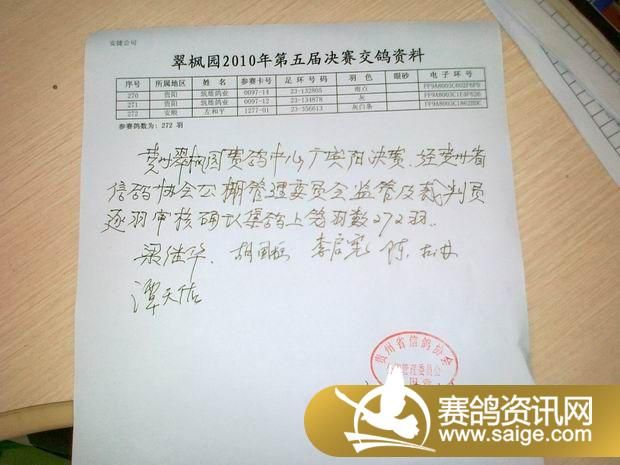 安捷公司
翠枫园2010年第五届决赛交鸽资料
序号 所属地区 姓名 参赛卡号 足环号码 羽色 眼砂 电子环号
270 贵阳 筑盾鸽业 0097-14 23-132805 雨点 FF9A8003C602F6F9
271 贵阳 筑盾鸽业 0097-12 23-134878 灰
272 安顺 左和平 1277-01 23-356613 灰白条 FF9A8003C1862BDC
参赛鸽数为:272 羽
贵州翠枫园赛鸽中心广宾阳决赛.经贵州省
信鸽协会公棚管理委员会监管及裁判员
逐羽审核确认集鸽上笼羽数272羽.
梁佳华. 李启宪 陈
谭天佑
贵州省信鸽协会
管理委员会
赛鸽资讯网
www.saige.com